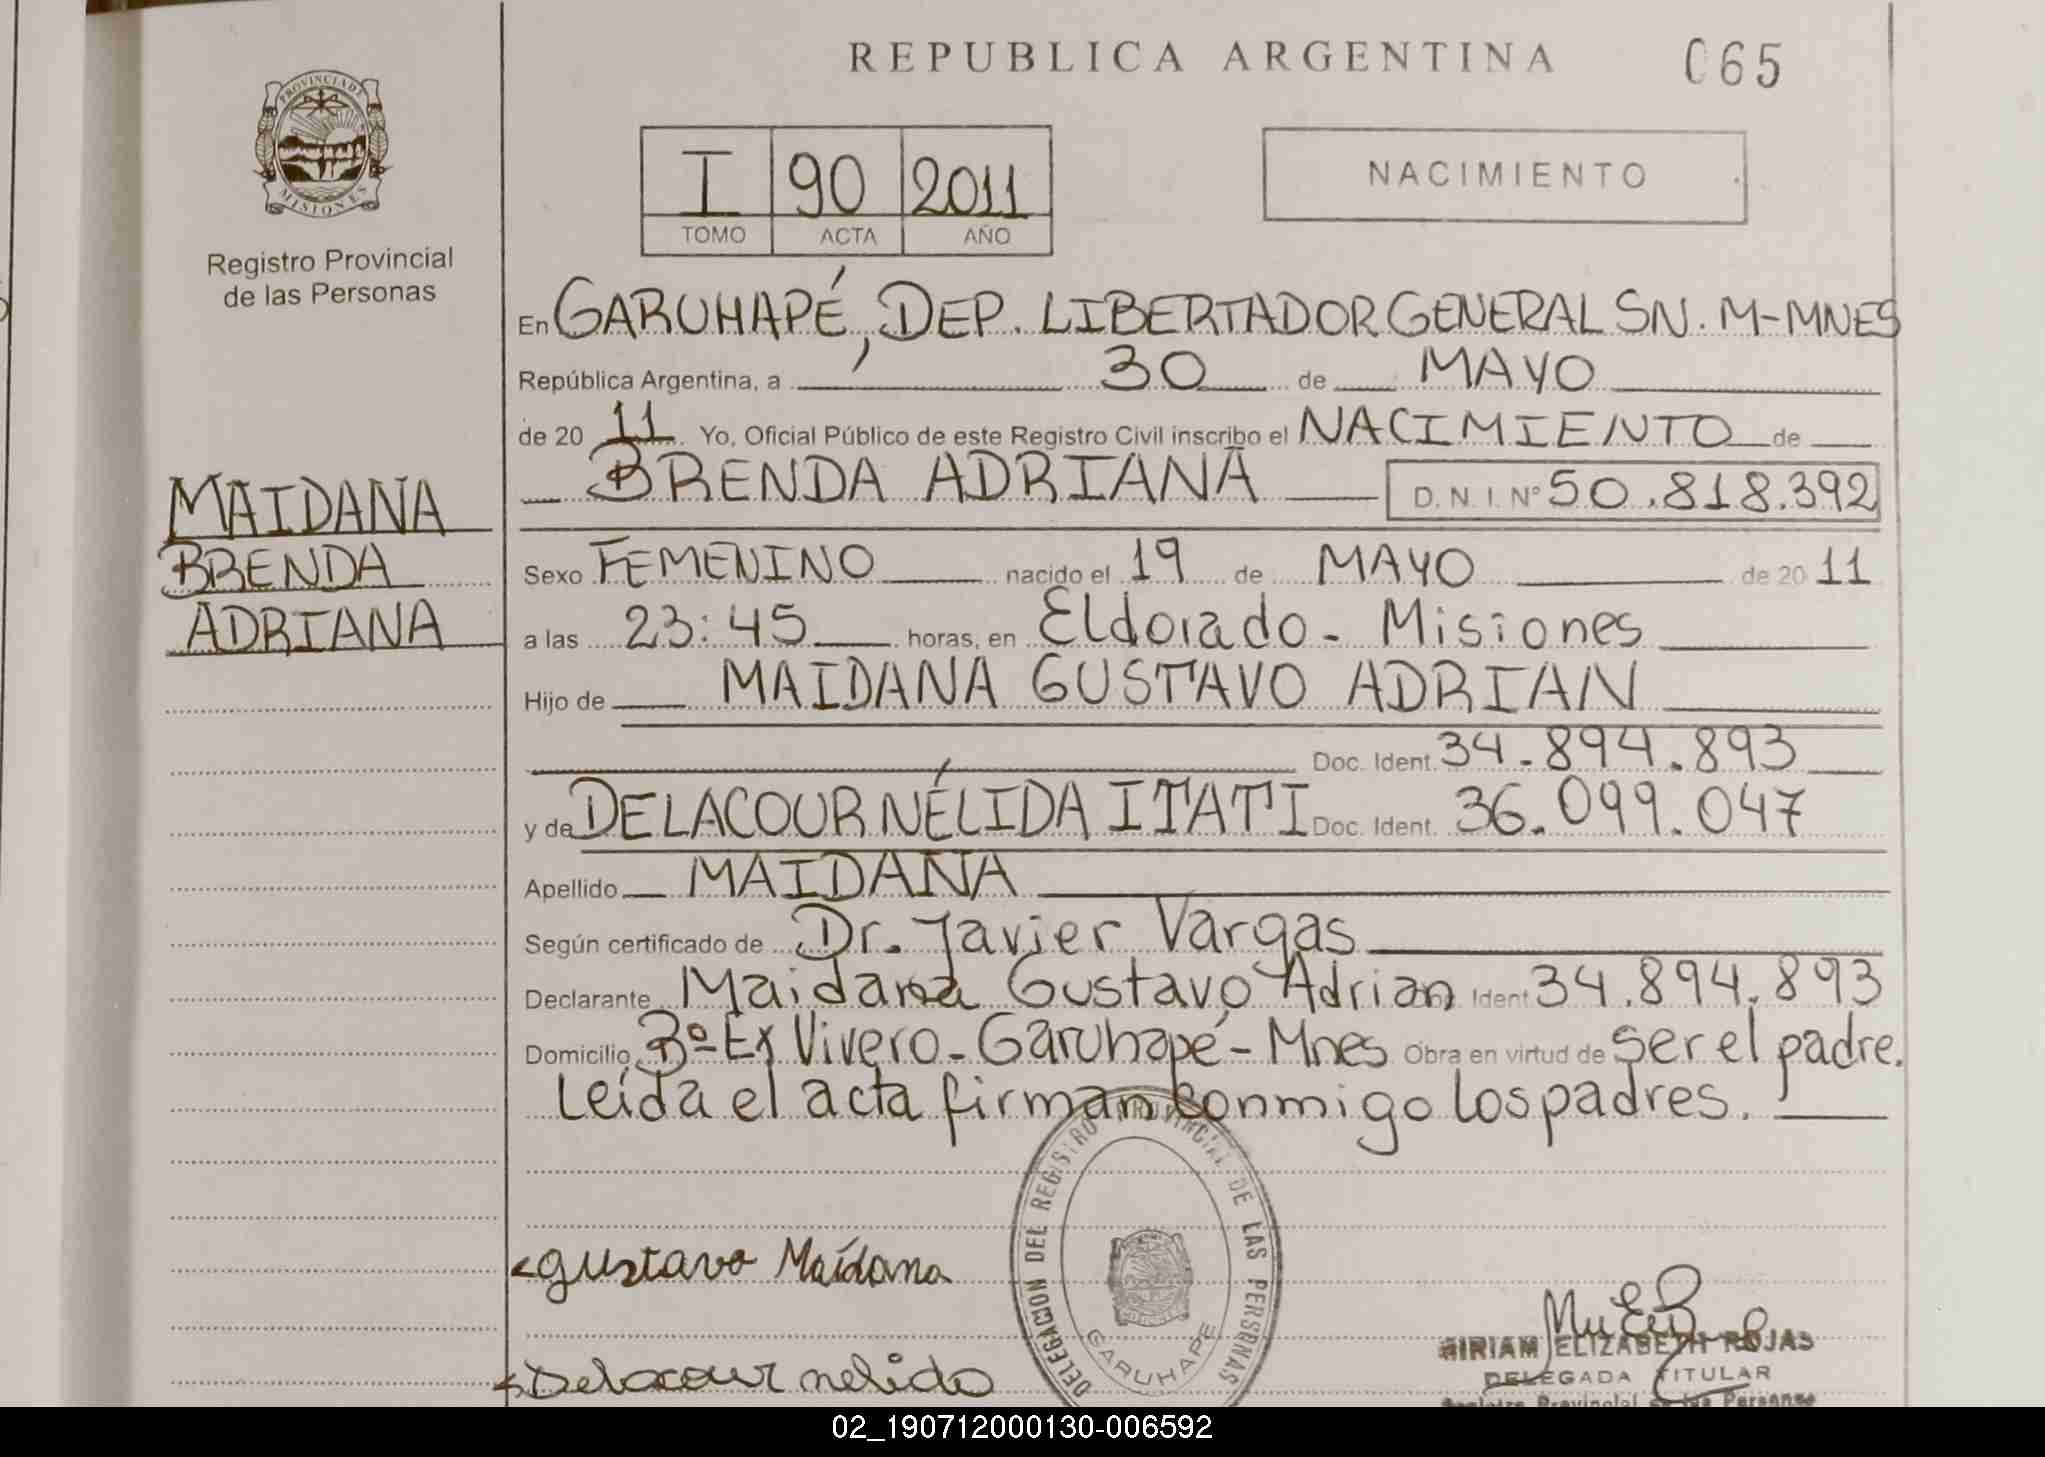 REPUBLICA ARGENTINA
065
PROVINCIA DE
MISIONES
Registro Provincial
de las Personas
I 90 2011
TOMO ACTA AÑO
NACIMIENTO
En GARUHAPÉ, DEP. LIBERTADOR GENERAL SN. M-MNES
República Argentina, a 30 de MAYO
de 20 11 Yo, Oficial Público de este Registro Civil inscribo el NACIMIENTO de
BRENDA ADRIANA D. N. I. Nº 50.818.392
MAIDANA
BRENDA
ADRIANA
Sexo FEMENINO nacido el 19 de MAYO de 20 11
a las 23:45 horas, en Eldorado - Misiones
Hijo de MAIDANA GUSTAVO ADRIAN
Doc. Ident. 34.894.893
y de DELACOUR NÉLIDA ITATI Doc. Ident. 36.099.047
Apellido MAIDANA
Según certificado de Dr. Javier Vargas
Declarante Maidana Gustavo Adrian Ident 34.894.893
Domicilio Bº Ex Vivero - Garuhapé - Mnes Obra en virtud de ser el padre.
Leída el acta firman conmigo los padres.
DELEGACION DEL REGISTRO PROVINCIAL DE LAS PERSONAS
GARUHAPE
gustavo Maidana
Delacour nelida
MIRIAM ELIZABETH ROJAS
DELEGADA TITULAR
Registro Provincial de las Personas
02_190712000130-006592